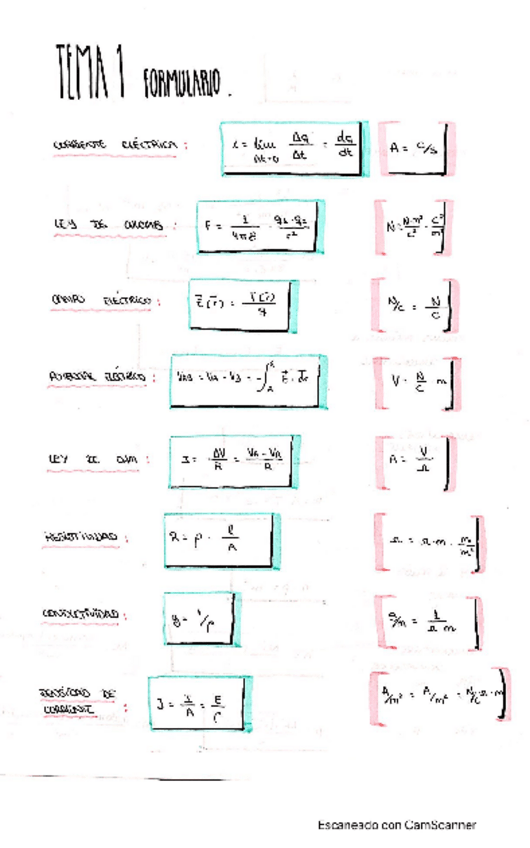 TEMA 1 FORMULARIO.
CORRIENTE ELÉCTRICA: i = lim Δt→0 Δq/Δt = dq/dt [A = C/s]
LEY DE COULOMB: F = 1/4πε · q1·q2/r² [N = N·m²/C² · C²/m²]
CAMPO ELÉCTRICO: E⃗(r⃗) = F(r⃗)/q [N/C = N/C]
POTENCIAL ELÉCTRICO: VAB = VA - VB = -∫ E⃗ · dr⃗ [V = N/C m]
LEY DE OHM: I = ΔV/R = [A = V/Ω]
RESISTIVIDAD: R = ρ · l/A [Ω = Ω·m · m/m²]
CONDUCTIVIDAD: = 1/ρ [= 1/Ω m]
DENSIDAD DE
CORRIENTE: J = I/A = E/ρ [A/m² = A/m² =
Escaneado con CamScanner